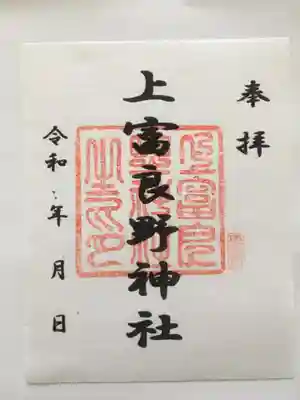 奉拝
上富良野神社
令和 年 月 日